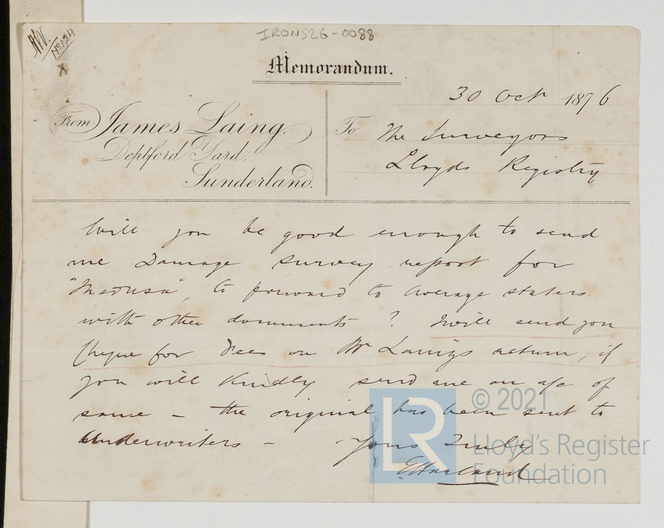 IRONS26-0088
No 124
Memorandum.
30 Oct 1876
From James Laing.
Deptford Yard.
Sunderland.
To The Surveyors
Lloyds Registry
Will you be good enough to send
me Damage survey report for
"Medusa", to forward to Average staters
with other documents? I will send you
Cheque for Fees on Mr Laings return, if
you will kindly send me an a/c of
same - the original has been sent to
Underwriters -
Yours Truly
LR
© 2021
Lloyd's Register
Foundation